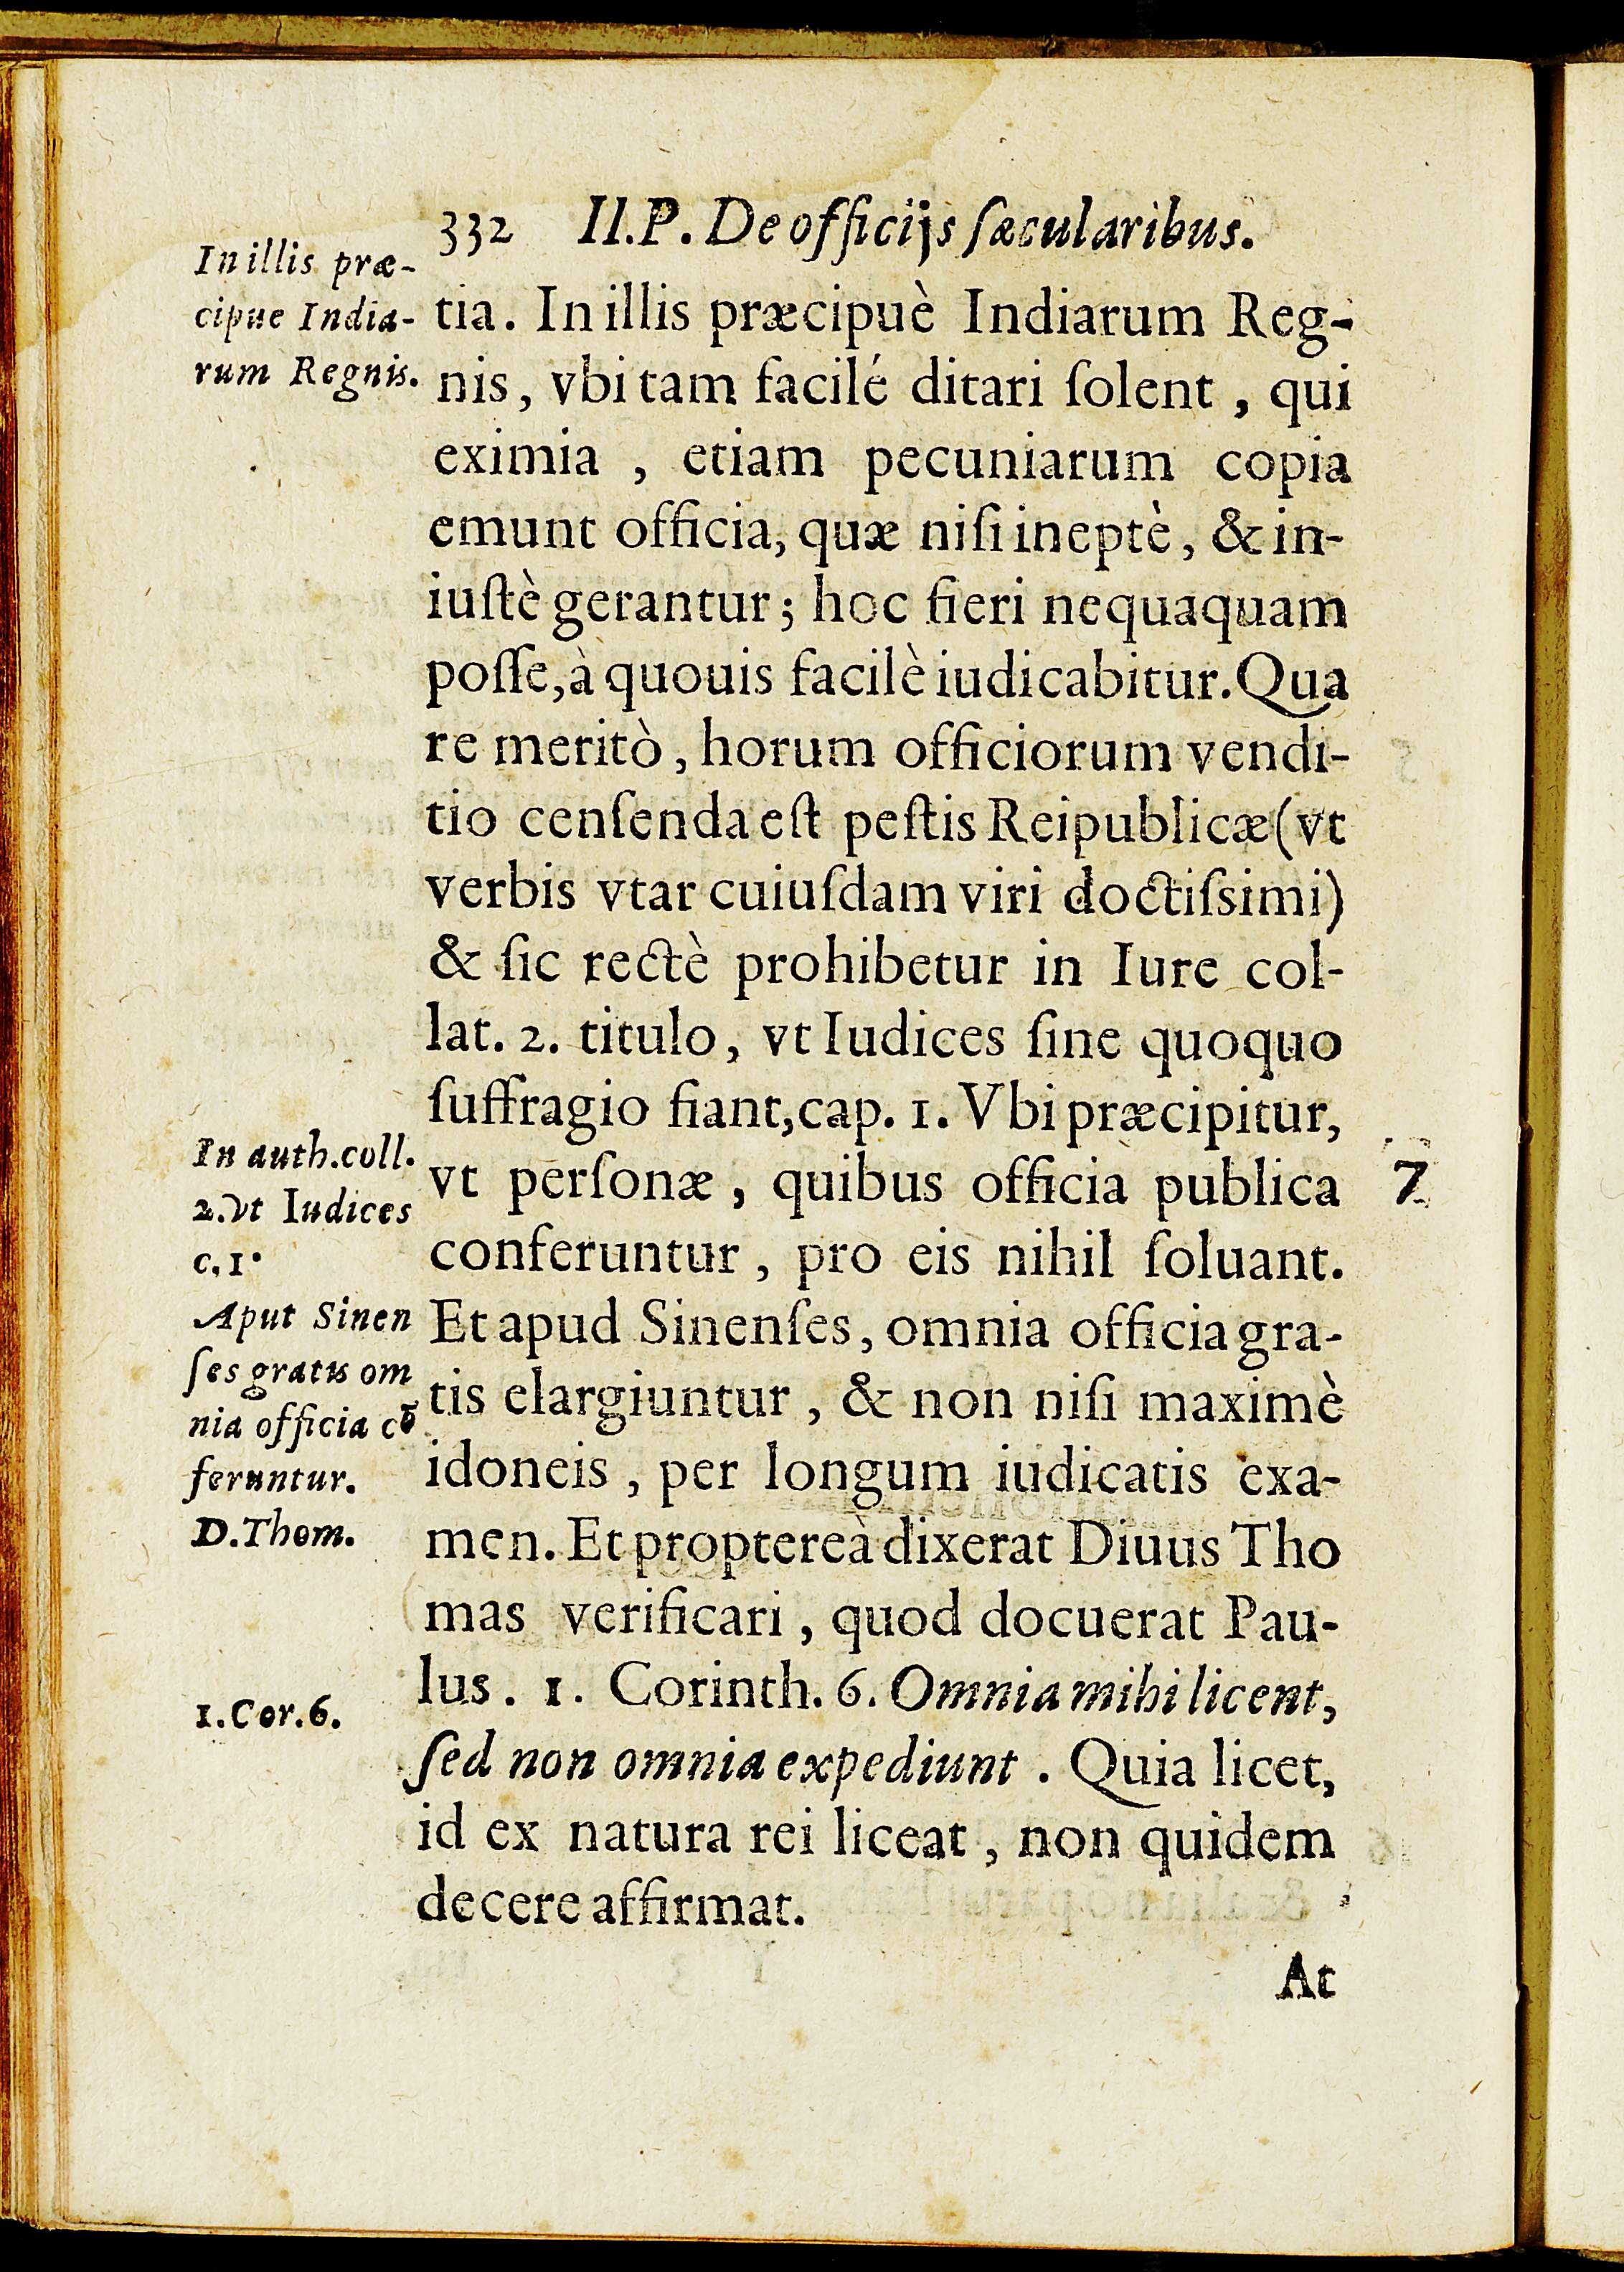 332 II.P. De officijs sæcularibus.
In illis præ-
cipue India-
rum Regnis.
tia. In illis præcipuè Indiarum Reg-
nis, vbi tam facilé ditari ſolent, qui
eximia, etiam pecuniarum copia
emunt officia, quæ niſi ineptè, & in-
iuſtè gerantur; hoc fieri nequaquam
poſſe, à quouis facilè iudicabitur. Qua
re meritò, horum officiorum vendi-
tio cenſenda eſt peſtis Reipublicæ (vt
verbis vtar cuiuſdam viri doctiſsimi)
& ſic rectè prohibetur in Iure col-
lat. 2. titulo, vt Iudices ſine quoquo
ſuffragio fiant, cap. 1. Vbi præcipitur,
vt perſonæ, quibus officia publica
conferuntur, pro eis nihil ſoluant.
Et apud Sinenſes, omnia officia gra-
tis elargiuntur, & non niſi maximè
idoneis, per longum iudicatis exa-
men. Et proptereà dixerat Diuus Tho
mas verificari, quod docuerat Pau-
lus. 1. Corinth. 6. Omnia mihi licent,
ſed non omnia expediunt. Quia licet,
id ex natura rei liceat, non quidem
decere affirmat.
In auth. coll.
2. vt Iudices
c. 1.
Aput Sinen
ſes gratis om
nia officia cō
feruntur.
D. Thom.
1. Cor. 6.
7
At